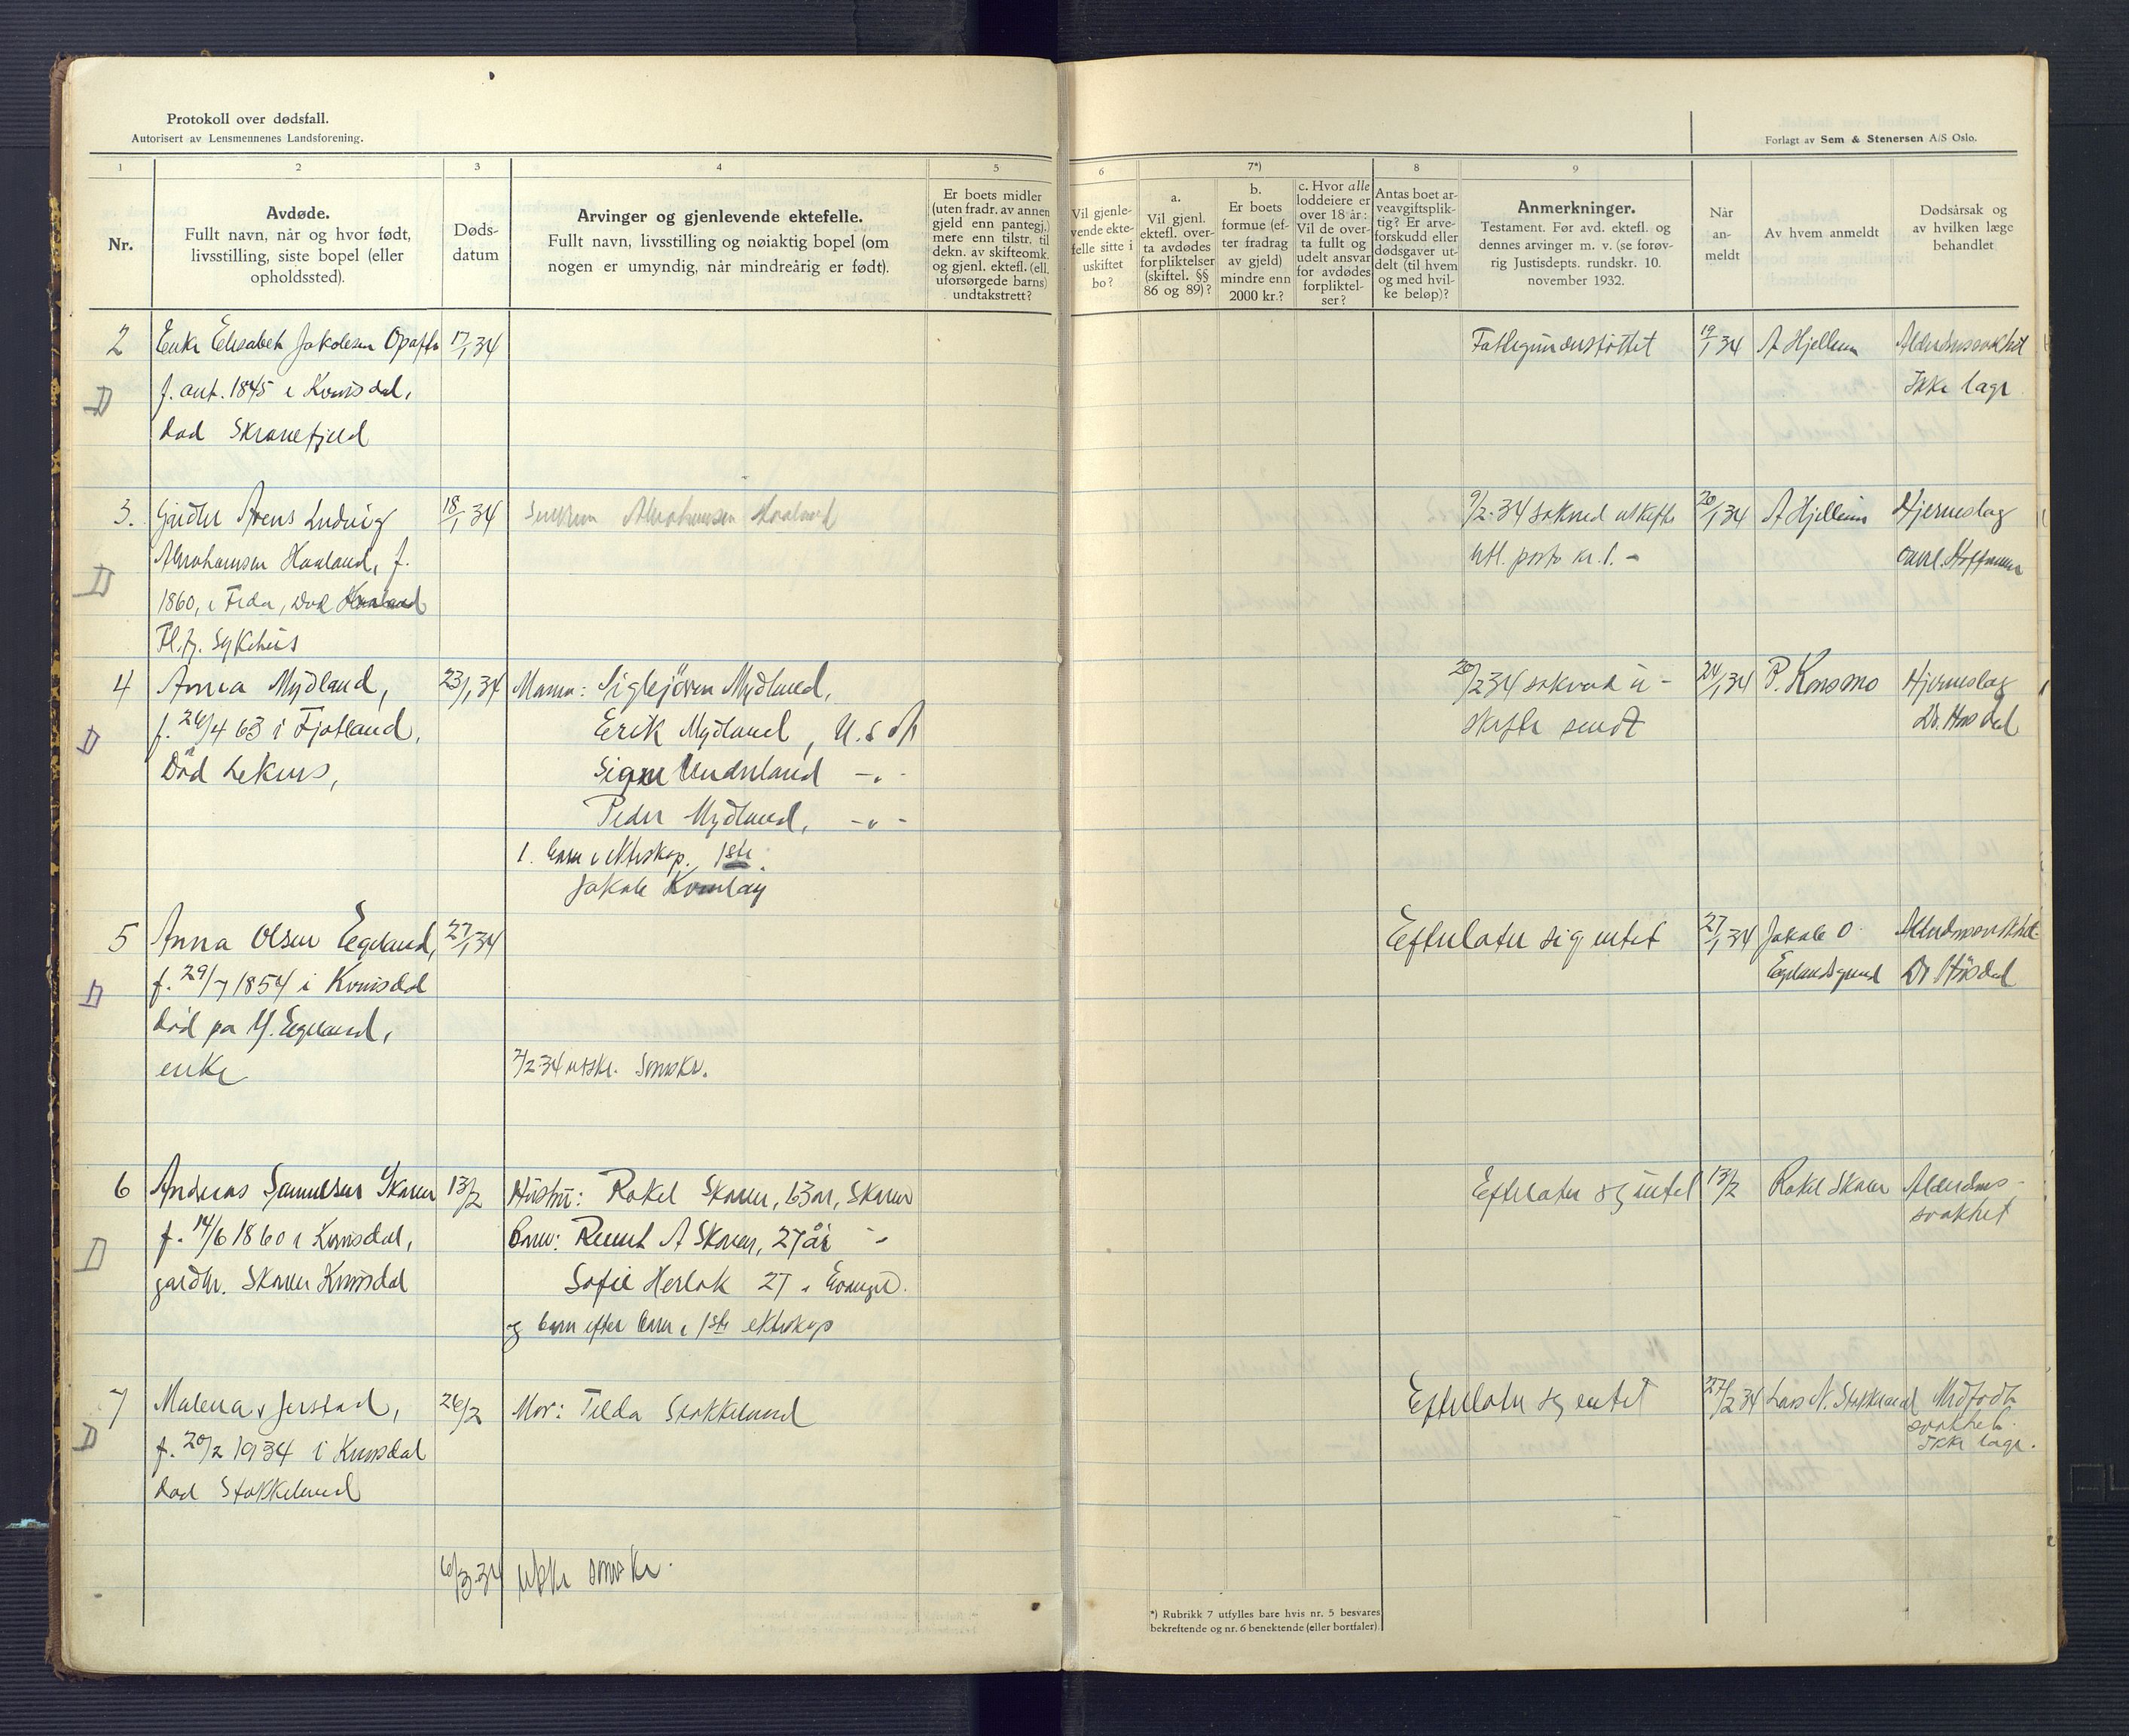 Protokoll over dødsfall.
Autorisert av Lensmennenes Landsforening.
Forlagt av Sem & Stenersen A/S Oslo.
1
Nr.
2
Avdøde.
Fullt navn, når og hvor født,
livsstilling, siste bopel (eller
opholdssted).
3
Døds-
datum
4
Arvinger og gjenlevende ektefelle.
Fullt navn, livsstilling og nøiaktig bopel (om
nogen er umyndig, når mindreårig er født).
5
Er boets midler
(uten fradr. av annen
gjeld enn pantegj.)
mere enn tilstr. til
dekn. av skifteomk.
og gjenl. ektefl. (ell.
uforsørgede barns)
undtakstrett?
6
Vil gjenle-
vende ekte-
felle sitte i
uskiftet
bo?
7*)
a.
Vil gjenl.
ektefl. over-
ta avdødes
forpliktelser
(skiftel. §§
86 og 89)?
b.
Er boets
formue (ef-
ter fradrag
av gjeld)
mindre enn
2000 kr.?
c. Hvor alle
loddeiere er
over 18 år:
Vil de over-
ta fullt og
udelt ansvar
for avdødes
forpliktel-
ser?
8
Antas boet ar-
veavgiftsplik-
tig? Er arve-
forskudd eller
dødsgaver ut-
delt (til hvem
og med hvil-
ke beløp)?
9
Anmerkninger.
Testament. Før avd. ektefl. og
dennes arvinger m. v. (se forøv-
rig Justisdepts. rundskr. 10.
november 1932.
Når
an-
meldt
Av hvem anmeldt
Dødsårsak og
av hvilken læge
behandlet
2
Enke Elisabet Jakobsen
17/1 34
Fattigunderstöttet
19/1 34
A Hjellum
Alderdomssvakhet
f. ant. 1845 i Kvinsdal,
Ikke læge
död
3.
Gårdbr Arens Ludvig
18/1 34
Abrahamsen Haaland
9/2-34 utskrift
20/1 34
A Hjellum
Hjerneslag
Abrahamsen Haaland, f.
porto kr. 1. -
Hoffmann
1860, i Feda, död Haaland
Fl.fj. Sykehus
4
Anna Mydland,
23/1 34
Mann: Mydland,
20/2 34
24/1 34
P. Konsmo
Hjerneslag
f. 26/4 63 i Fjotland,
Erik Mydland, U.S.A
sendt
Dr.
Död
Signe Underland -"-
Peder Mydland, -"-
1. barn i ekteskap. 1ste
Jakob
5
Anna Olsen Egeland,
27/1 34
Efterlater sig intet
27/1 34
Jakob O.
Alderdomssvakhet
f. 29/7 1854 i Kvinsdal
Egelandsgrend
Dr
död på Y. Egeland,
enke
2/2 34 utskr.
6
Andreas Samuelsen Skaren
13/2
Hustru: Rakel Skaren, 63 år, Skaren
Efterlater sig intet
13/2
Rakel Skaren
Alderdoms-
f. 14/6 1860 i Kvinsdal,
Barn: A Skaren, 27 år "
svakhet
gårdbr. Skaren Kvinsdal
Sofie 27 "
og barn efter barn i 1ste ekteskap
7
Malena Jerstad,
26/2
Mor: Tilda Stokkeland
Efterlater sig intet
27/2 34
Lars N. Stokkeland
Medfödt
svakhet.
f. 20/2 1934 i Kvinsdal
Ikke læge.
död Stokkeland
6/3-34
*) Rubrikk 7 utfylles bare hvis nr. 5 besvares
bekreftende og nr. 6 benektende (eller bortfaler).